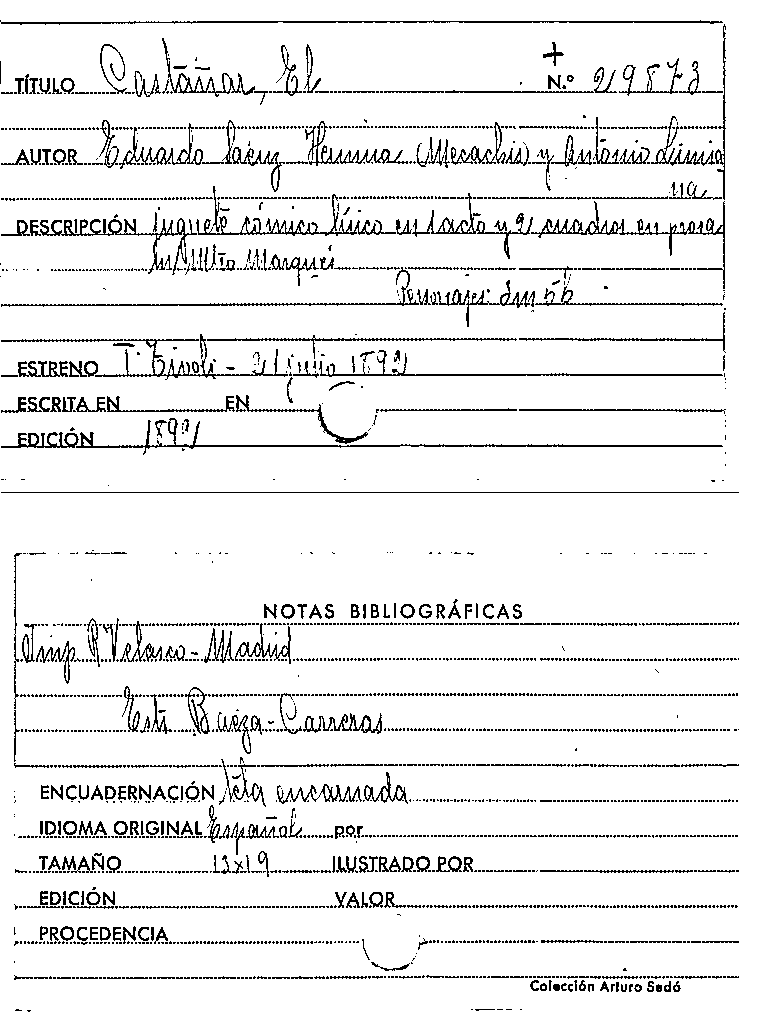 TÍTULO Castañar, El
+
N.º 29873
AUTOR Eduardo Saénz Hermua (Mecachis) y Antonio Limia
na
DESCRIPCIÓN juguete cómico lírico en 1 acto y 2 cuadros en prosa
M/ Mtro Marqués
Personajes: 5b
ESTRENO T. Tivoli - 21 julio 1892
ESCRITA EN EN
EDICIÓN 1892
NOTAS BIBLIOGRÁFICAS
Imp R Velasco - Madrid
Est: Baeza - Carreras
ENCUADERNACIÓN tela encarnada
IDIOMA ORIGINAL Español por
TAMAÑO 13x19 ILUSTRADO POR
EDICIÓN VALOR
PROCEDENCIA
Colección Arturo Sedó